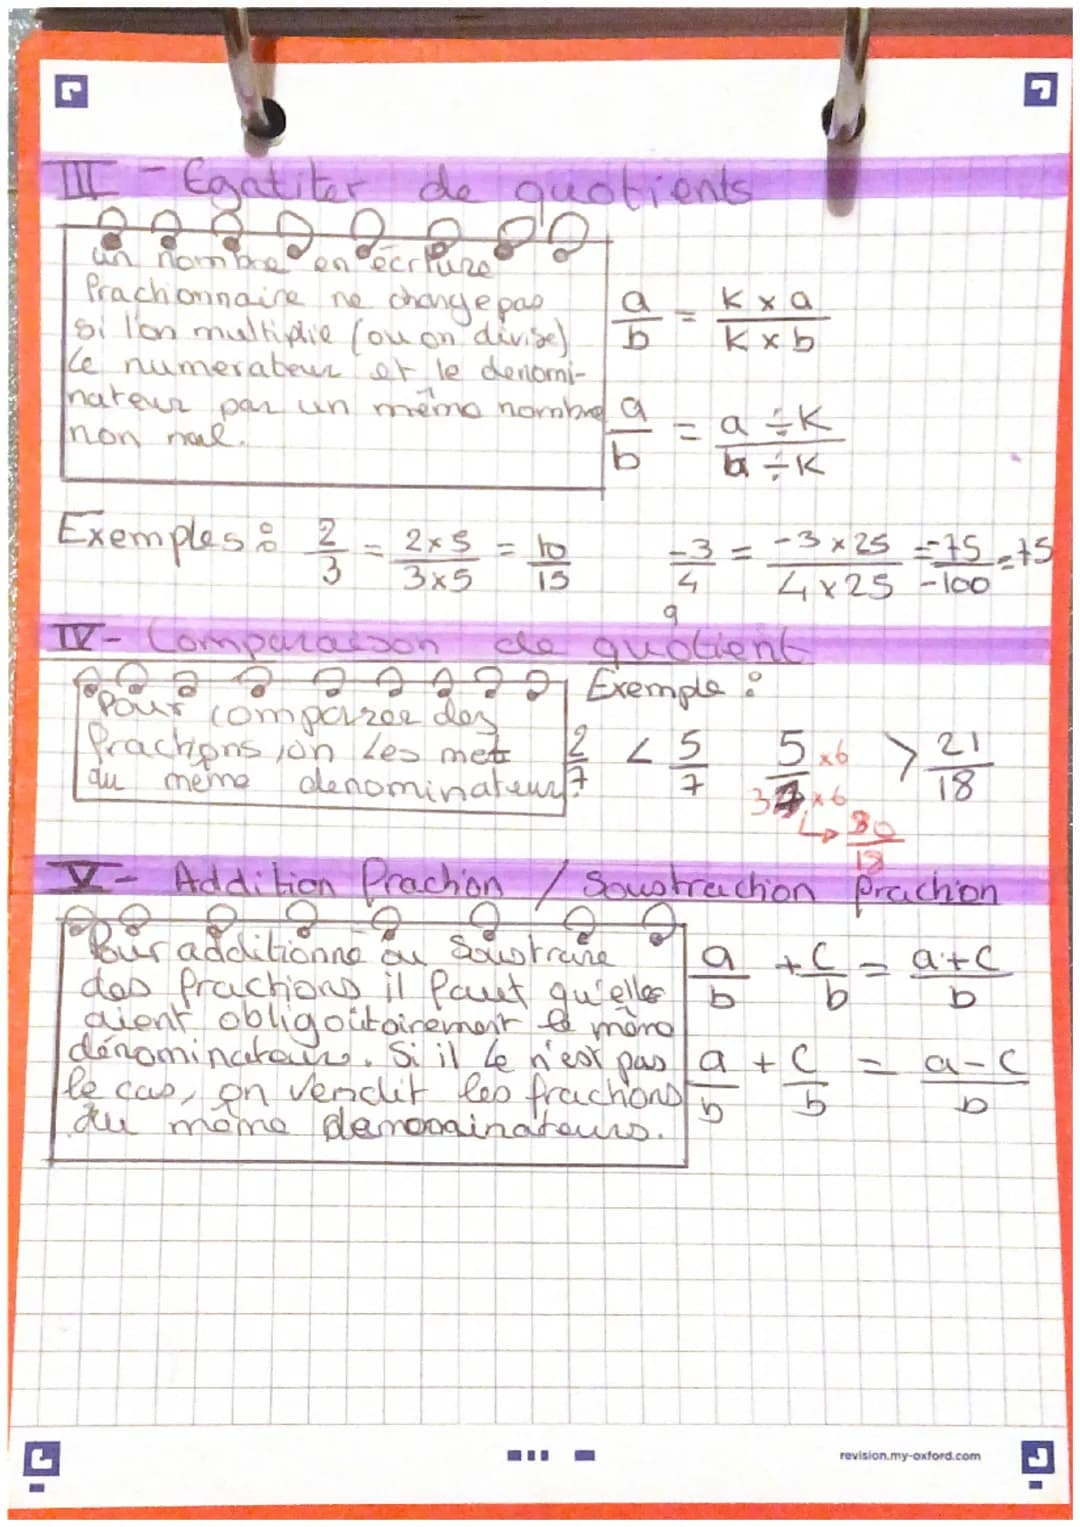 III - Egatiter de quotients
un nombre en écriture
Frachionnaire ne change pas
si l'on multiplie (ou on divise)
Le numerateur et le denomi-
nateur par un même nombre
non nul.
a/b = K x a / K x b
a/b = a ÷ K / b ÷ K
Exemples : 2/3 = 2x5 / 3x5 = 10/15
-3/4 = -3 x 25 / 4 x 25 = -75/-100 = 75
IV - Comparaison de quotient
Pour comparer des
frachions, on Les met
du même denominateur.
Exemple :
2/7 < 5/7
5 x6 > 21/18
3 x6
↳ 30/18
V - Addition Frachion / Soustrachion frachion
Pour additionné ou Soustraire
des frachions il faut qu'elles
aient obligoitoirement le même
dénominateur. Si il Le n'est pas
le cas, on vendit les frachions
du même denominateurs.
a/b + c/b = a+c/b
a/b + c/b = a-c/b
revision.my-oxford.com